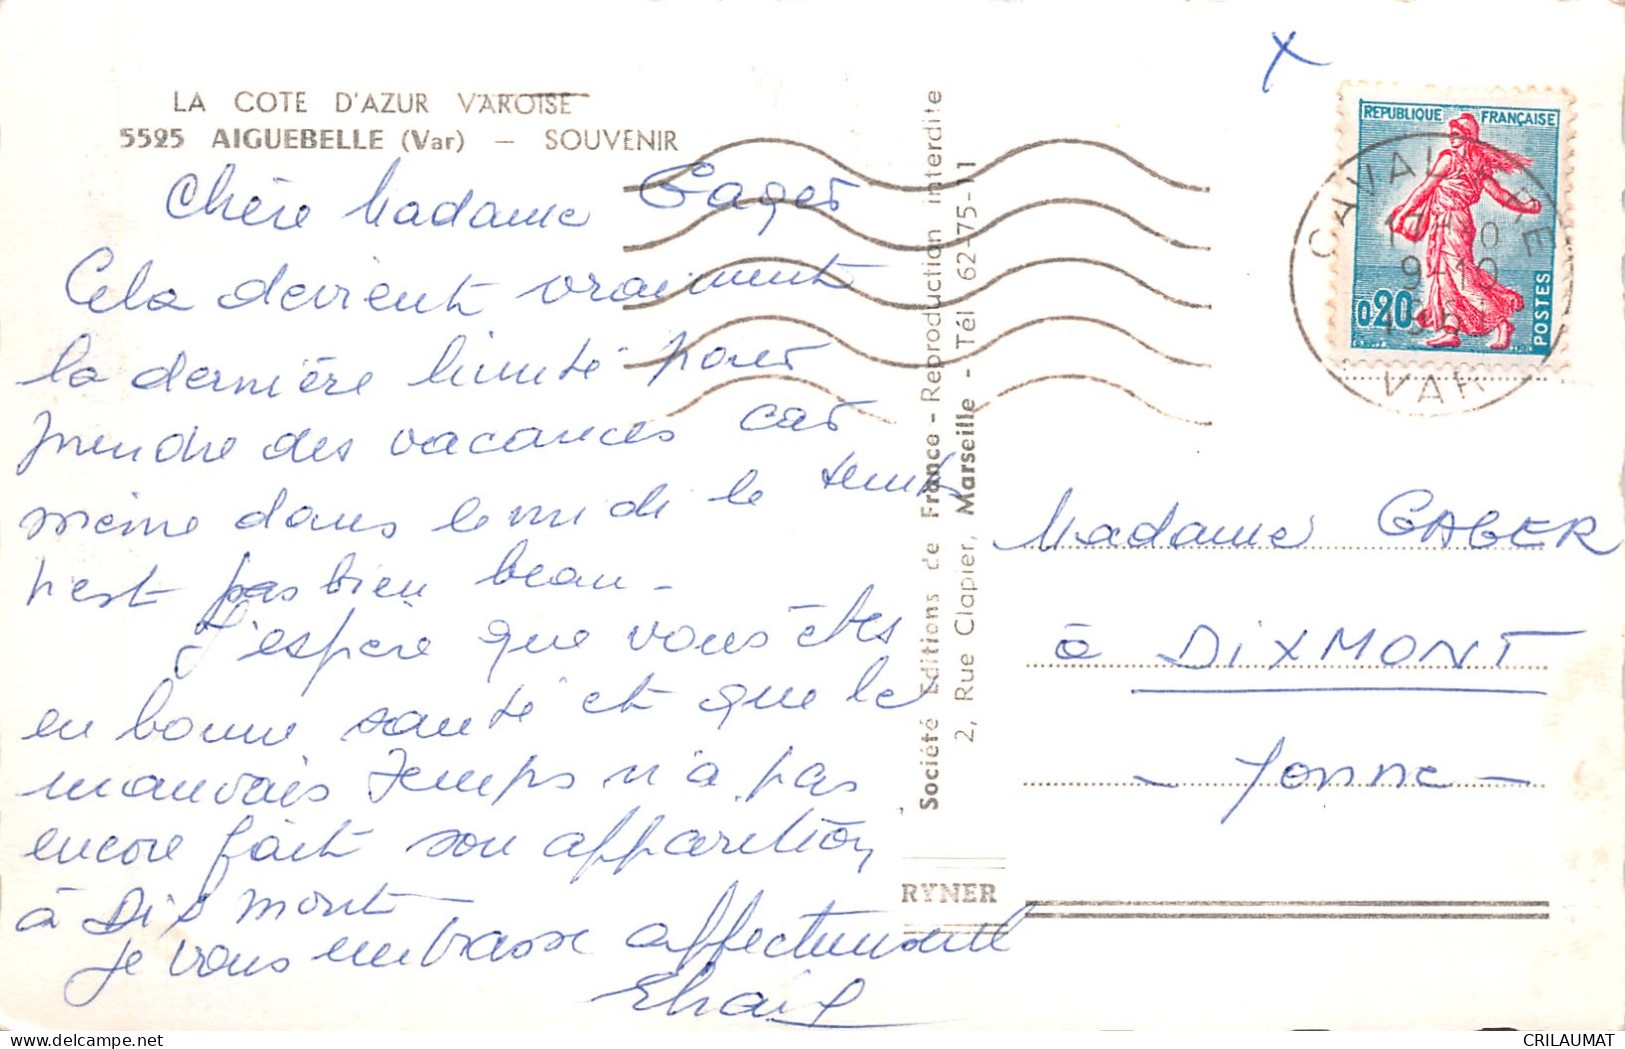 LA COTE D'AZUR VAROISE
5525 AIGUEBELLE (Var) — SOUVENIR
Chère Madame Gager
Cela devient vraiment
la dernière limite pour
prendre des vacances car
même dans le midi le temps
n'est pas bien beau -
J'espère que vous êtes
en bonne santé et que le
mauvais temps n'a pas
encore fait son apparition
à Dixmont
je vous embrasse affectueusement
Société Editions de France - Reproduction interdite
2, Rue Clapier, Marseille - Tél 62-75-11
RYNER
REPUBLIQUE FRANÇAISE
0,20
POSTES
CAVALIERE
9-10
VAR
Madame GAGER
à DIXMONT
- Yonne -
CRILAUMAT